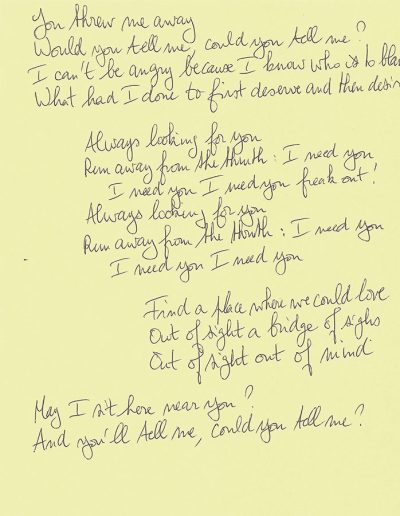 You threw me away
Would you tell me, could you tell me?
I can't be angry because I know who is to bla
What had I done to first deserve and then desi
Always looking for you
Run away from the thruth: I need you
I need you I need you freak out!
Always looking for you
Run away from the thruth: I need you
I need you I need you
Find a place where we could love
Out of sight a bridge of sighs
Out of sight out of mind
May I sit here near you?
And you'll tell me, could you tell me?